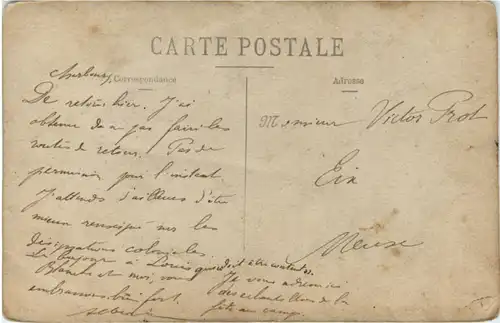 CARTE POSTALE
Correspondance
Adresse
Cherbourg
De retour hier. J'ai
obtenu de pas faire les
de retour. Pas de
permission pour l'instant.
J'attends d'ailleurs d'être
mieux renseigné sur les
désignations coloniales.
à Louis qui doit être
Blanche et moi, vous
embrassons bien fort.
Je vous
de la
fête au camp.
Monsieur Victor Prot
Eix
Meuse